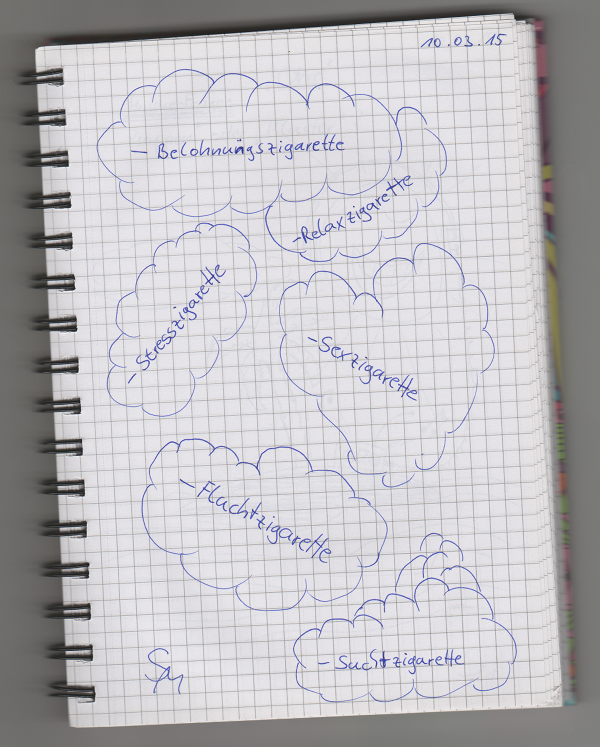 10.03.15
- Belohnungszigarette
- Relaxzigarette
- Stresszigarette
- Sexzigarette
- Fluchtzigarette
- Suchtzigarette